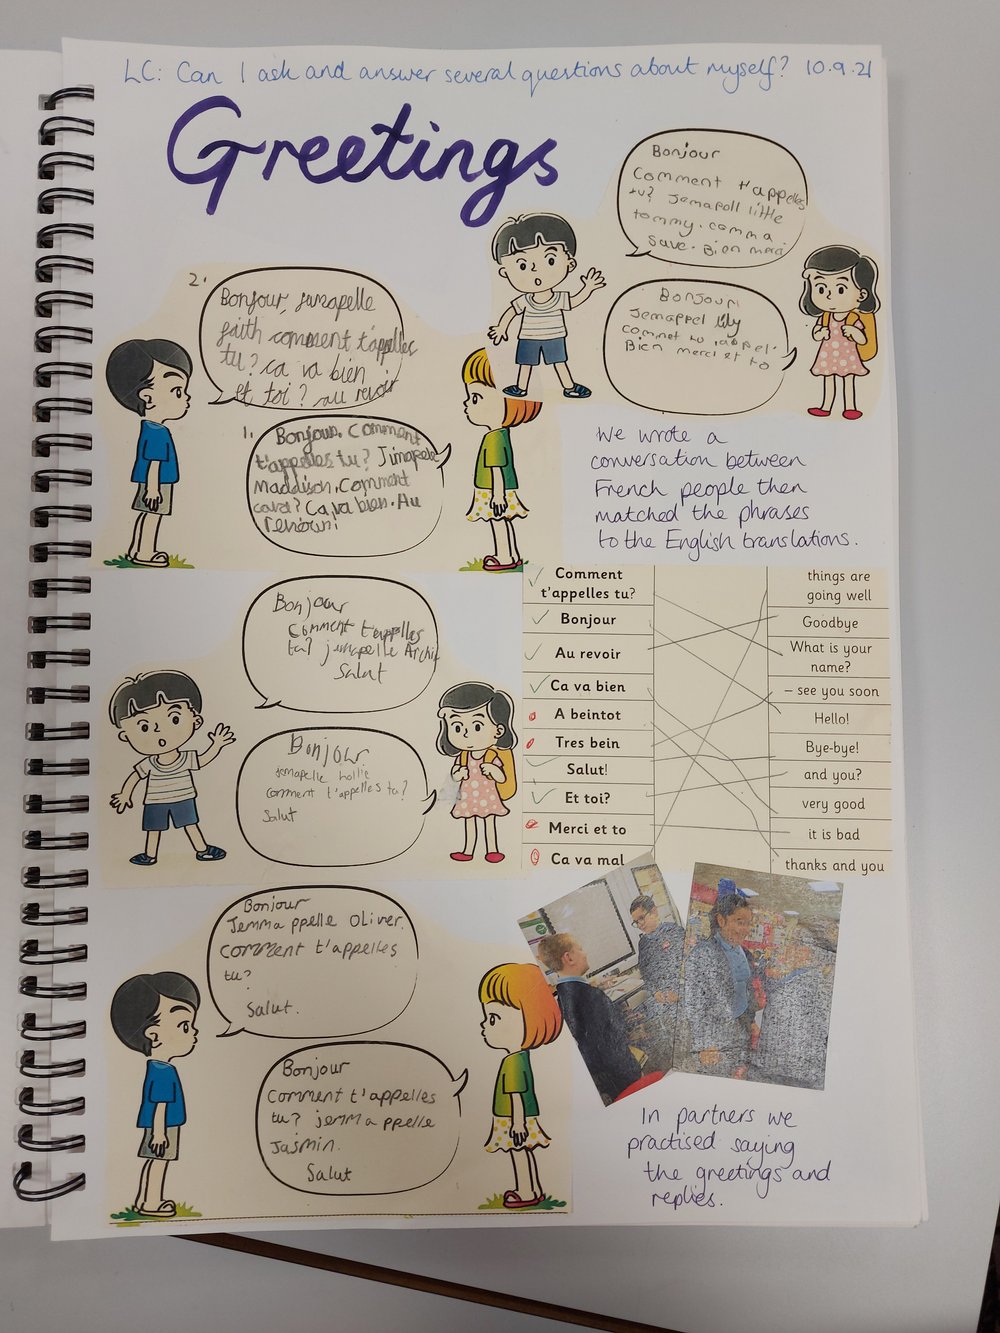 LC: Can I ask and answer several questions about myself? 10.9.21
Greetings
Bonjour
Comment t'appelles
tu? Jemapoll little
tommy. comma
save. Bien merci
Bonjour
Jemappel lily
commet tu
Bien merci et to
2.
Bonjour, jemapelle
faith comment t'appelles
tu? ca va bien
et toi? au revoir
1.
Bonjour. Comment
t'appelles tu? Jimapele
Maddison. Comment
cava? Ca va bien. Au
We wrote a
conversation between
French people then
matched the phrases
to the English translations.
Bonjour
Comment t'appelles
jemapelle Archie
Salut
Bonjour
jemapelle hollie
comment t'appelles tu?
Salut
Comment
t'appelles tu?
Bonjour
Au revoir
Ca va bien
A beintot
Tres bein
Salut!
Et toi?
Merci et to
Ca va mal
things are
going well
Goodbye
What is your
name?
– see you soon
Hello!
Bye-bye!
and you?
very good
it is bad
thanks and you
Bonjour
Jemma ppelle Oliver.
Comment t'appelles
tu?
Salut.
Bonjour
Comment t'appelles
tu? jemma ppelle
Jasmin.
Salut
In partners we
practised saying
the greetings and
replies.